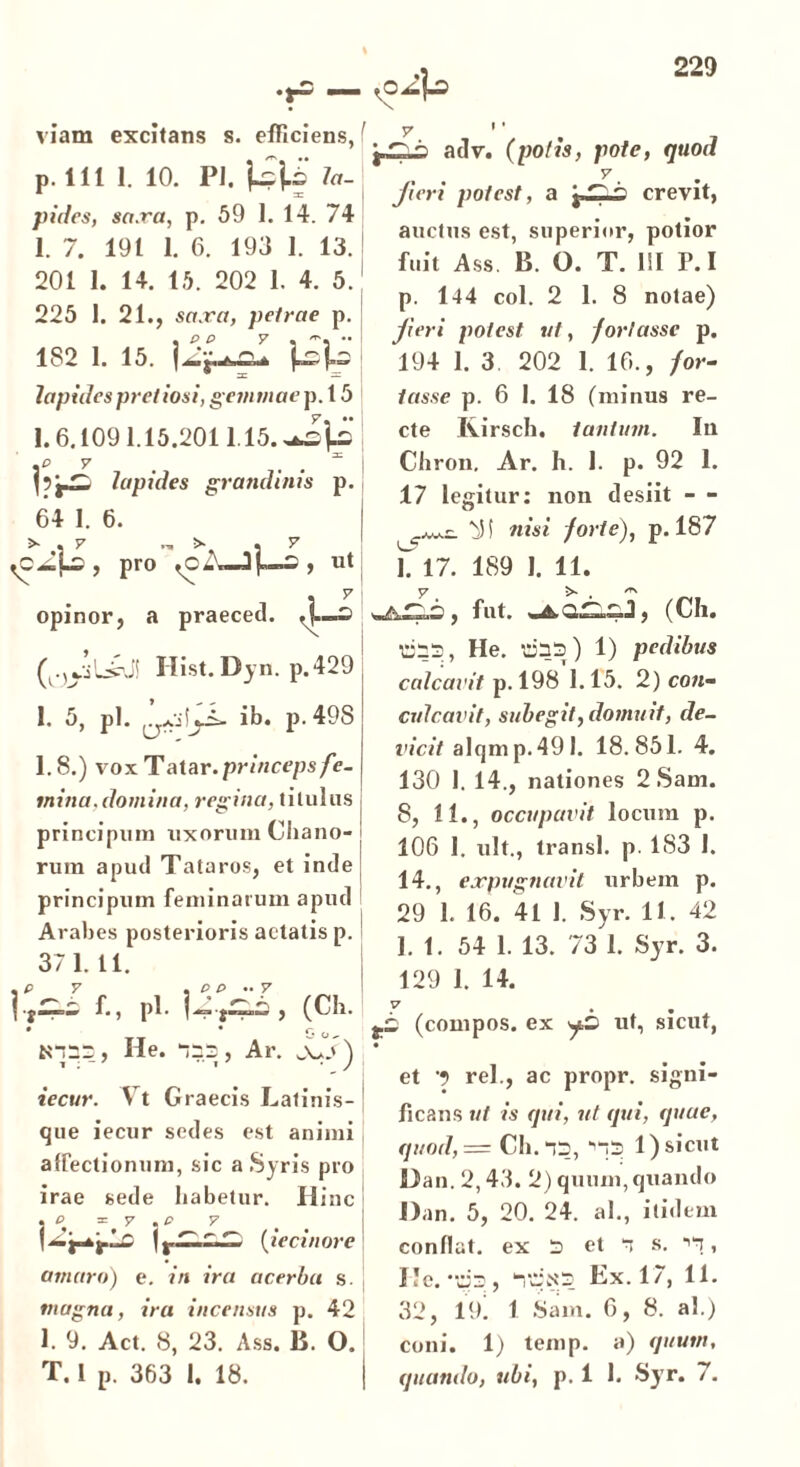 229
viam excitans s. efficiens,
p. 111 l. 10. Pl. ܟܐܦܐ la-
pides, saxa, p. 59 l. 14. 74
l. 7. 191 l. 6. 193 l. 13.
201 l. 14. 15. 202 l. 4. 5.
225 l. 21., saxa, petrae p.
182 l. 15. ܟܐܦܐ
lapides pretiosi, gemmae p. 15
l. 6. 109 l. 15. 201 l. 15. ܟܐܦܝ
ܒܪܕܐ lapides grandinis p.
64 l. 6.
pro , ut
opinor, a praeced.
Hist. Dyn. p. 429
l. 5, pl. ib. p. 498
l. 8.) vox Tatar. princeps fe-
mina, domina, regina, titulus
principum uxorum Chano-
rum apud Tataros, et inde
principum feminarum apud
Arabes posterioris aetatis p.
37 l. 11.
ܟܒܕܐ f., pl. , (Ch.
כבדא, He. כבד, Ar. كبد)
iecur. Vt Graecis Latinis-
que iecur sedes est animi
affectionum, sic a Syris pro
irae sede habetur. Hinc
ܟܒܕܐ ܡܪܝܪܬܐ (iecinore
amaro) e. in ira acerba s.
magna, ira incensus p. 42
l. 9. Act. 8, 23. Ass. B. O.
T. I p. 363 l. 18.
ܟܒܪ adv. (potis, pote, quod
fieri potest, a ܟܒܪ crevit,
auctus est, superior, potior
fuit Ass. B. O. T. III P. I
p. 144 col. 2 l. 8 notae)
fieri potest ut, fortasse p.
194 l. 3. 202 l. 16., for-
tasse p. 6 l. 18 (minus re-
cte Kirsch. tantum. In
Chron. Ar. h. l. p. 92 l.
17 legitur: non desiit - -
nisi forte), p. 187
l. 17. 189 l. 11.
ܟܒܫ, fut. ܢܟܒܘܫ, (Ch.
כבש, He. כבש) 1) pedibus
calcavit p. 198 l. 15. 2) con-
culcavit, subegit, domuit, de-
vicit alqm p. 49 l. 18. 85 l. 4.
130 l. 14., nationes 2 Sam.
8, 11., occupavit locum p.
106 l. ult., transl. p. 183 l.
14., expugnavit urbem p.
29 l. 16. 41 l. Syr. 11. 42
l. 1. 54 l. 13. 73 l. Syr. 3.
129 l. 14.
ܟܕ (compos. ex ut, sicut,
et ܕ rel., ac propr. signi-
ficans ut is qui, ut qui, quae,
quod, = Ch. כד, כדי 1) sicut
Dan. 2, 43. 2) quum, quando
Dan. 5, 20. 24. al., itidem
conflat. ex כ et ד s. די,
He. כש׳, כאשר Ex. 17, 11.
32, 19. 1 Sam. 6, 8. al.)
coni. 1) temp. a) quum,
quando, ubi, p. 1 l. Syr. 7.